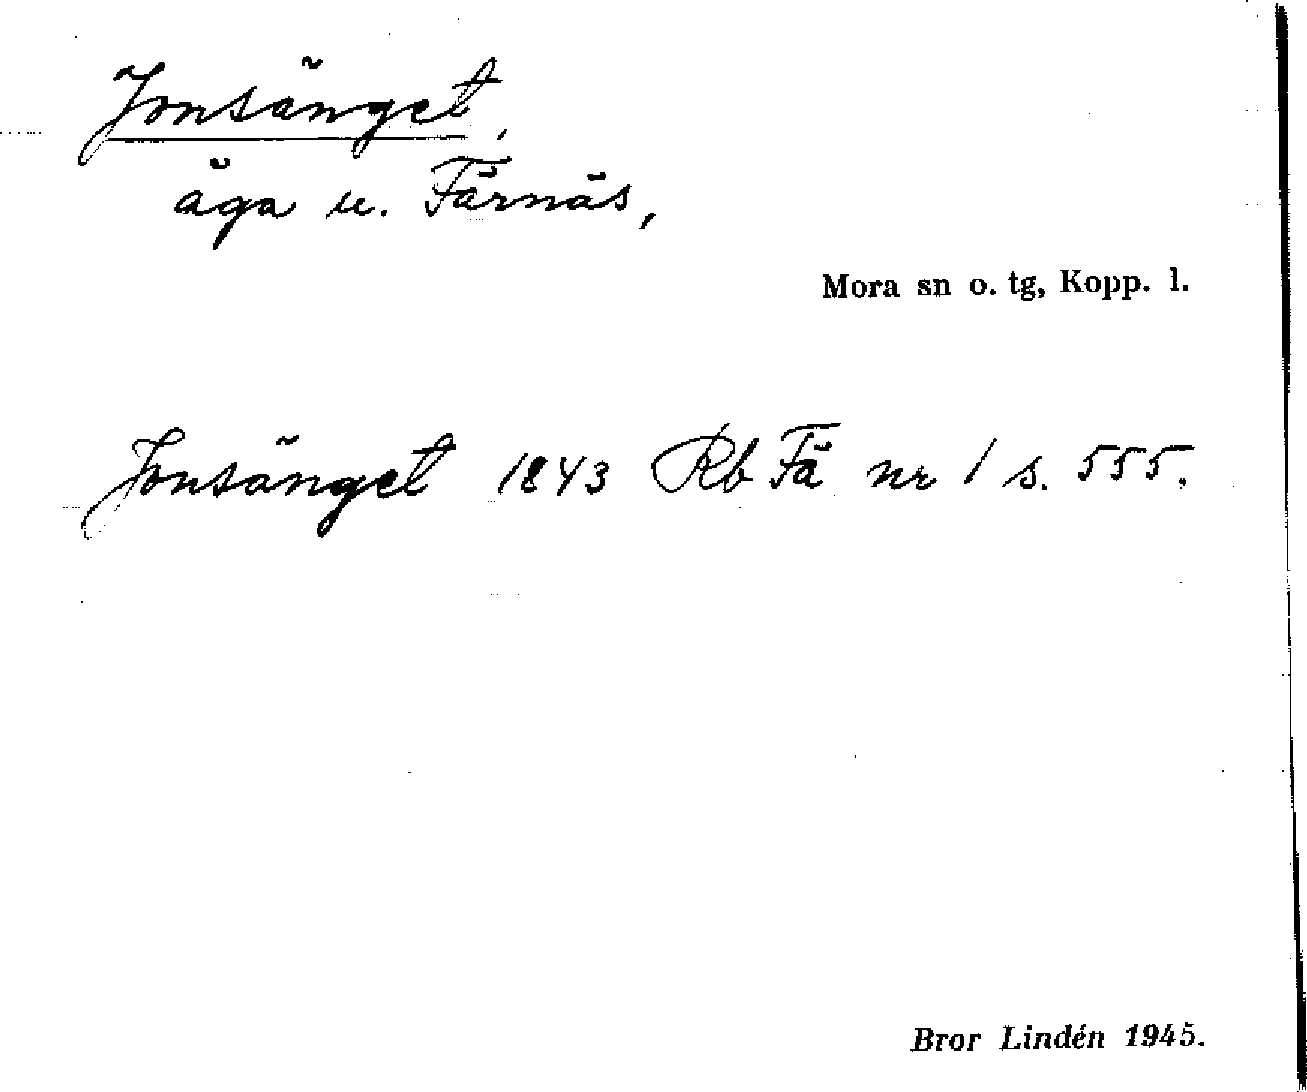 Jonsänget,
äga u. Färnäs,
Mora sn o. tg, Kopp. l.
Jonsänget 1843 Rb Fä nr 1 s. 555.
Bror Lindén 1945.